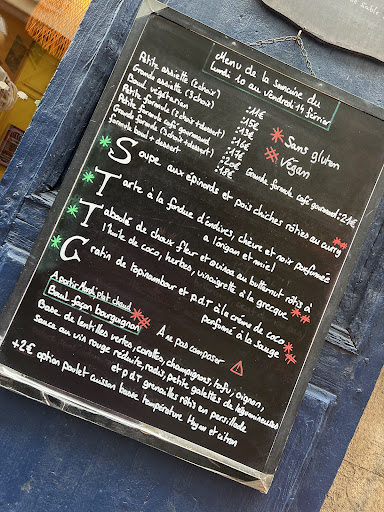 Menu de la semaine du
lundi 10 au vendredi 14 février
Petite assiette (2 choix) : 11€
Grande assiette (3 choix) : 15€
Bowl végétarien : 13€
Petite formule (2 choix + dessert) : 16€
Petite formule café gourmand : 17€
Grande formule (3 choix + dessert) : 20€
Grande formule café gourmand : 21€
formule bowl + dessert : 18€
* Sans gluten
* Végan
Soupe aux épinards et pois chiches rôties au curry **
Tarte à la fondue d'endives, chèvre et noix parfumée
à l'origan et miel
Taboulé de choux fleur et quinoa au butternut rôtis à
l'huile de coco, herbes, vinaigrette à la grecque **
Gratin de topinambour et p.d.T à la crème de coco
parfumé à la Sauge **
A partir Mardi, plat chaud
Bowl façon bourguignon **
À ne pas composer
Base de lentilles vertes, carottes, champignons, tofu, oignon,
sauce au vin rouge réduite, radis, petite galettes de légumineuses
et p.d.T grenailles rôtis en persillade
+2€ option poulet cuisson basse température thym et citron